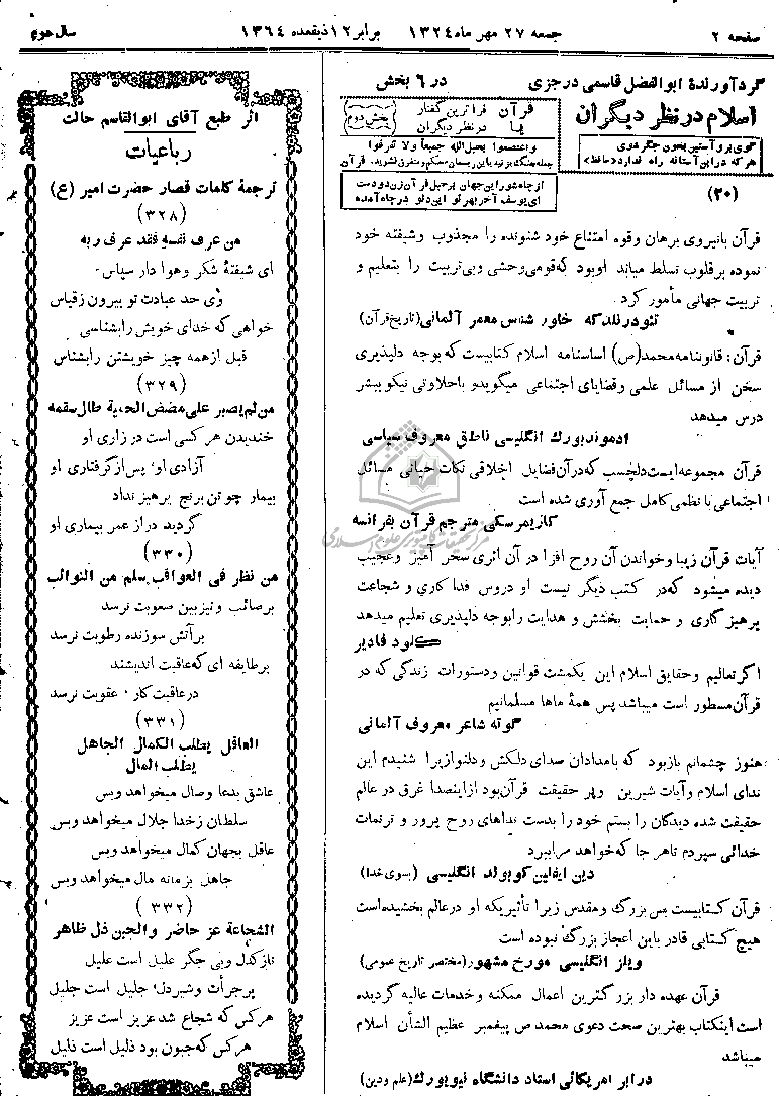 صفحه ۲
جمعه ۲۷ مهر ماه ۱۳۲۴ برابر ۱۲ ذیقعده ۱۳۶۴
سال دوم
گردآورندهٔ ابوالفضل قاسمی درجزی
در ۶ بخش
اسلام در نظر دیگران
هر که در این آستانه راه ندارد «حافظ»
قرآن فراترین گفتار
در نظر دیگران
بخش دوم
واعتصموا بحبل الله جمیعا ولا تفرقوا
ای یوسف آخر بهر تو این دلو در چاه آمده
(۲۰)
قرآن با نیروی برهان وقوه امتناع خود شنونده را مجذوب وشیفته خود
نموده بر قلوب تسلط میابد او بود که قومی وحشی وبی تربیت را بتعلیم و
تربیت جهانی مأمور کرد
تئودر نلدکه خاور شناس معمر آلمانی (تاریخ قرآن)
قرآن : قانونامه محمد (ص) اساسنامه اسلام کتابیست که بوجه دلپذیری
سخن از مسائل علمی وقضایای اجتماعی میگوید و باحلاوتی نیکو ببشر
درس میدهد
ادموند بورک انگلیسی ناطق معروف سیاسی
قرآن مجموعه ایست دلچسب که در آن فضایل اخلاقی نکات حیاتی مسائل
اجتماعی با نظمی کامل جمع آوری شده است
کازیمرسکی مترجم قرآن بفرانسه
مرکز تحقیقات کامپیوتری علوم اسلامی
آیات قرآن زیبا و خواندن آن روح افزا در آن اثری سحر آمیز وعجیب
دیده میشود که در کتب دیگر نیست او دروس فدا کاری و شجاعت
پرهیز گاری و حمایت بخشش و هدایت را بوجه دلپذیری تعلیم میدهد
کلود فادیر
اگر تعالیم وحقایق اسلام این یکمشت قوانین ودستورات زندگی که در
قرآن مسطور است میباشد پس همهٔ ماها مسلمانیم
گوته شاعر معروف آلمانی
هنوز چشمانم باز بود که بامدادان صدای دلکش ودلنوازیرا شنیدم این
ندای اسلام وآیات شیرین وپر حقیقت قرآن بود از اینصدا غرق در عالم
حقیقت شده دیدگان را بستم خود را بدست نداهای روح پرور و ترنمات
خدائی سپردم تا هر جا که خواهد مرا ببرد
دین ایفلین کوبولد انگلیسی (بسوی خدا)
قرآن کتابیست بس بزرگ ومقدس زیرا تأثیریکه او در عالم بخشیده است
هیچ کتابی قادر باین اعجاز بزرگ نبوده است
ویلز انگلیسی مورخ مشهور (مختصر تاریخ عمومی)
قرآن عهده دار بزرگترین اعمال ممکنه وخدمات عالیه گردیده
است اینکتاب بهترین صحت دعوی محمد ص پیغمبر عظیم الشأن اسلام
میباشد
درابر امریکائی استاد دانشگاه نیویورک (علم ودین)
اثر طبع آقای ابوالقاسم حالت
رباعیات
ترجمهٔ کلمات قصار حضرت امیر (ع)
(۳۲۸)
من عرف نفسه فقد عرف ربه
ای شیفتهٔ شکر وهوا دار سپاس
وی حد عبادت تو بیرون ز قیاس
خواهی که خدای خویش را بشناسی
قبل از همه چیز خویشتن را بشناس
(۳۲۹)
من لم یصبر علی مضض الحمیة طال سقمه
خندیدن هر کسی است در زاری او
آزادی او، پس از گرفتاری او
بیمار چو تن برنج پرهیز نداد
گردید دراز عمر بیماری او
(۳۳۰)
من نظر فی العواقب سلم من النوائب
بر صائب و تیز بین صعوبت نرسد
بر آتش سوزنده رطوبت نرسد
بر طایفه ای که عاقبت اندیشند
در عاقبت کار، عقوبت نرسد
(۳۳۱)
العاقل یطلب الکمال الجاهل
یطلب المال
عاشق بدعا وصال میخواهد وبس
سلطان ز خدا جلال میخواهد وبس
عاقل بجهان کمال میخواهد وبس
جاهل بزمانه مال میخواهد وبس
(۳۳۲)
الشجاعة عز حاضر والجبن ذل ظاهر
نازکدل وبی جگر علیل است علیل
پر جرأت وشیردل، جلیل است جلیل
هر کس که شجاع شد عزیز است عزیز
هر کس که جبون بود ذلیل است ذلیل